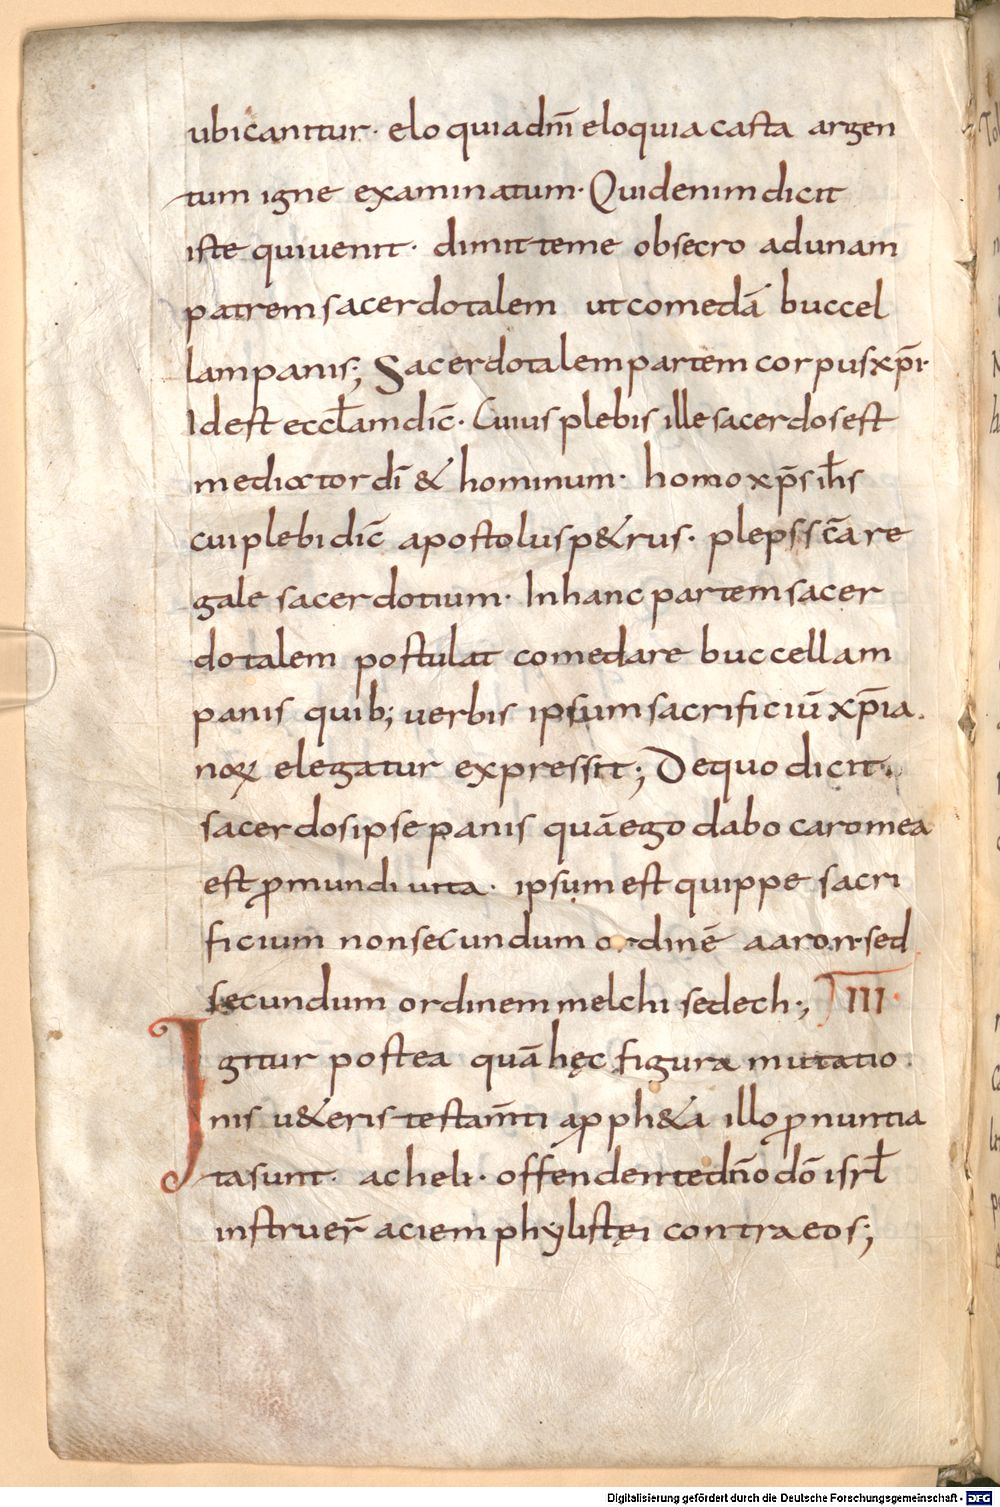 ubi canitur · eloquia dnī eloquia casta argen
tum igne examinatum · Quid enim dicit
iste qui uenit · dimitte me obsecro ad unam
patrem sacerdotalem ut comedā buccel
lam panis; Sacerdotalem partem corpus xp̄i ·
Id est eccłam dic̄ · Cuius plebis ille sacerdos est
mediator dī & hominum · homo xp̄s ih̄s
cui plebi dic̄ apostolus p&rus · pleps sc̄a re
gale sacerdotium · In hanc partem sacer
dotalem postulat comedare buccellam
panis quib; uerbis ipsum sacrificiū xp̄ia
noꝝ elegatur expressit; De quo dicit ·
sacerdos ipse panis quā ego dabo caro mea
est ꝓ mundi uita · ipsum est quippe sacri
ficium non secundum ordinē aaron · sed
secundum ordinem melchisedech ; III ·
Igitur postea quā hęc figura mutatio
nis u&eris testam̄ti a ꝓph&a illo ꝓnuntia
ta sunt · ac heli · offendente dn̄o dō isrł
instruer̄ aciem phylistęi contra eos;
Digitalisierung gefördert durch die Deutsche Forschungsgemeinschaft - DFG